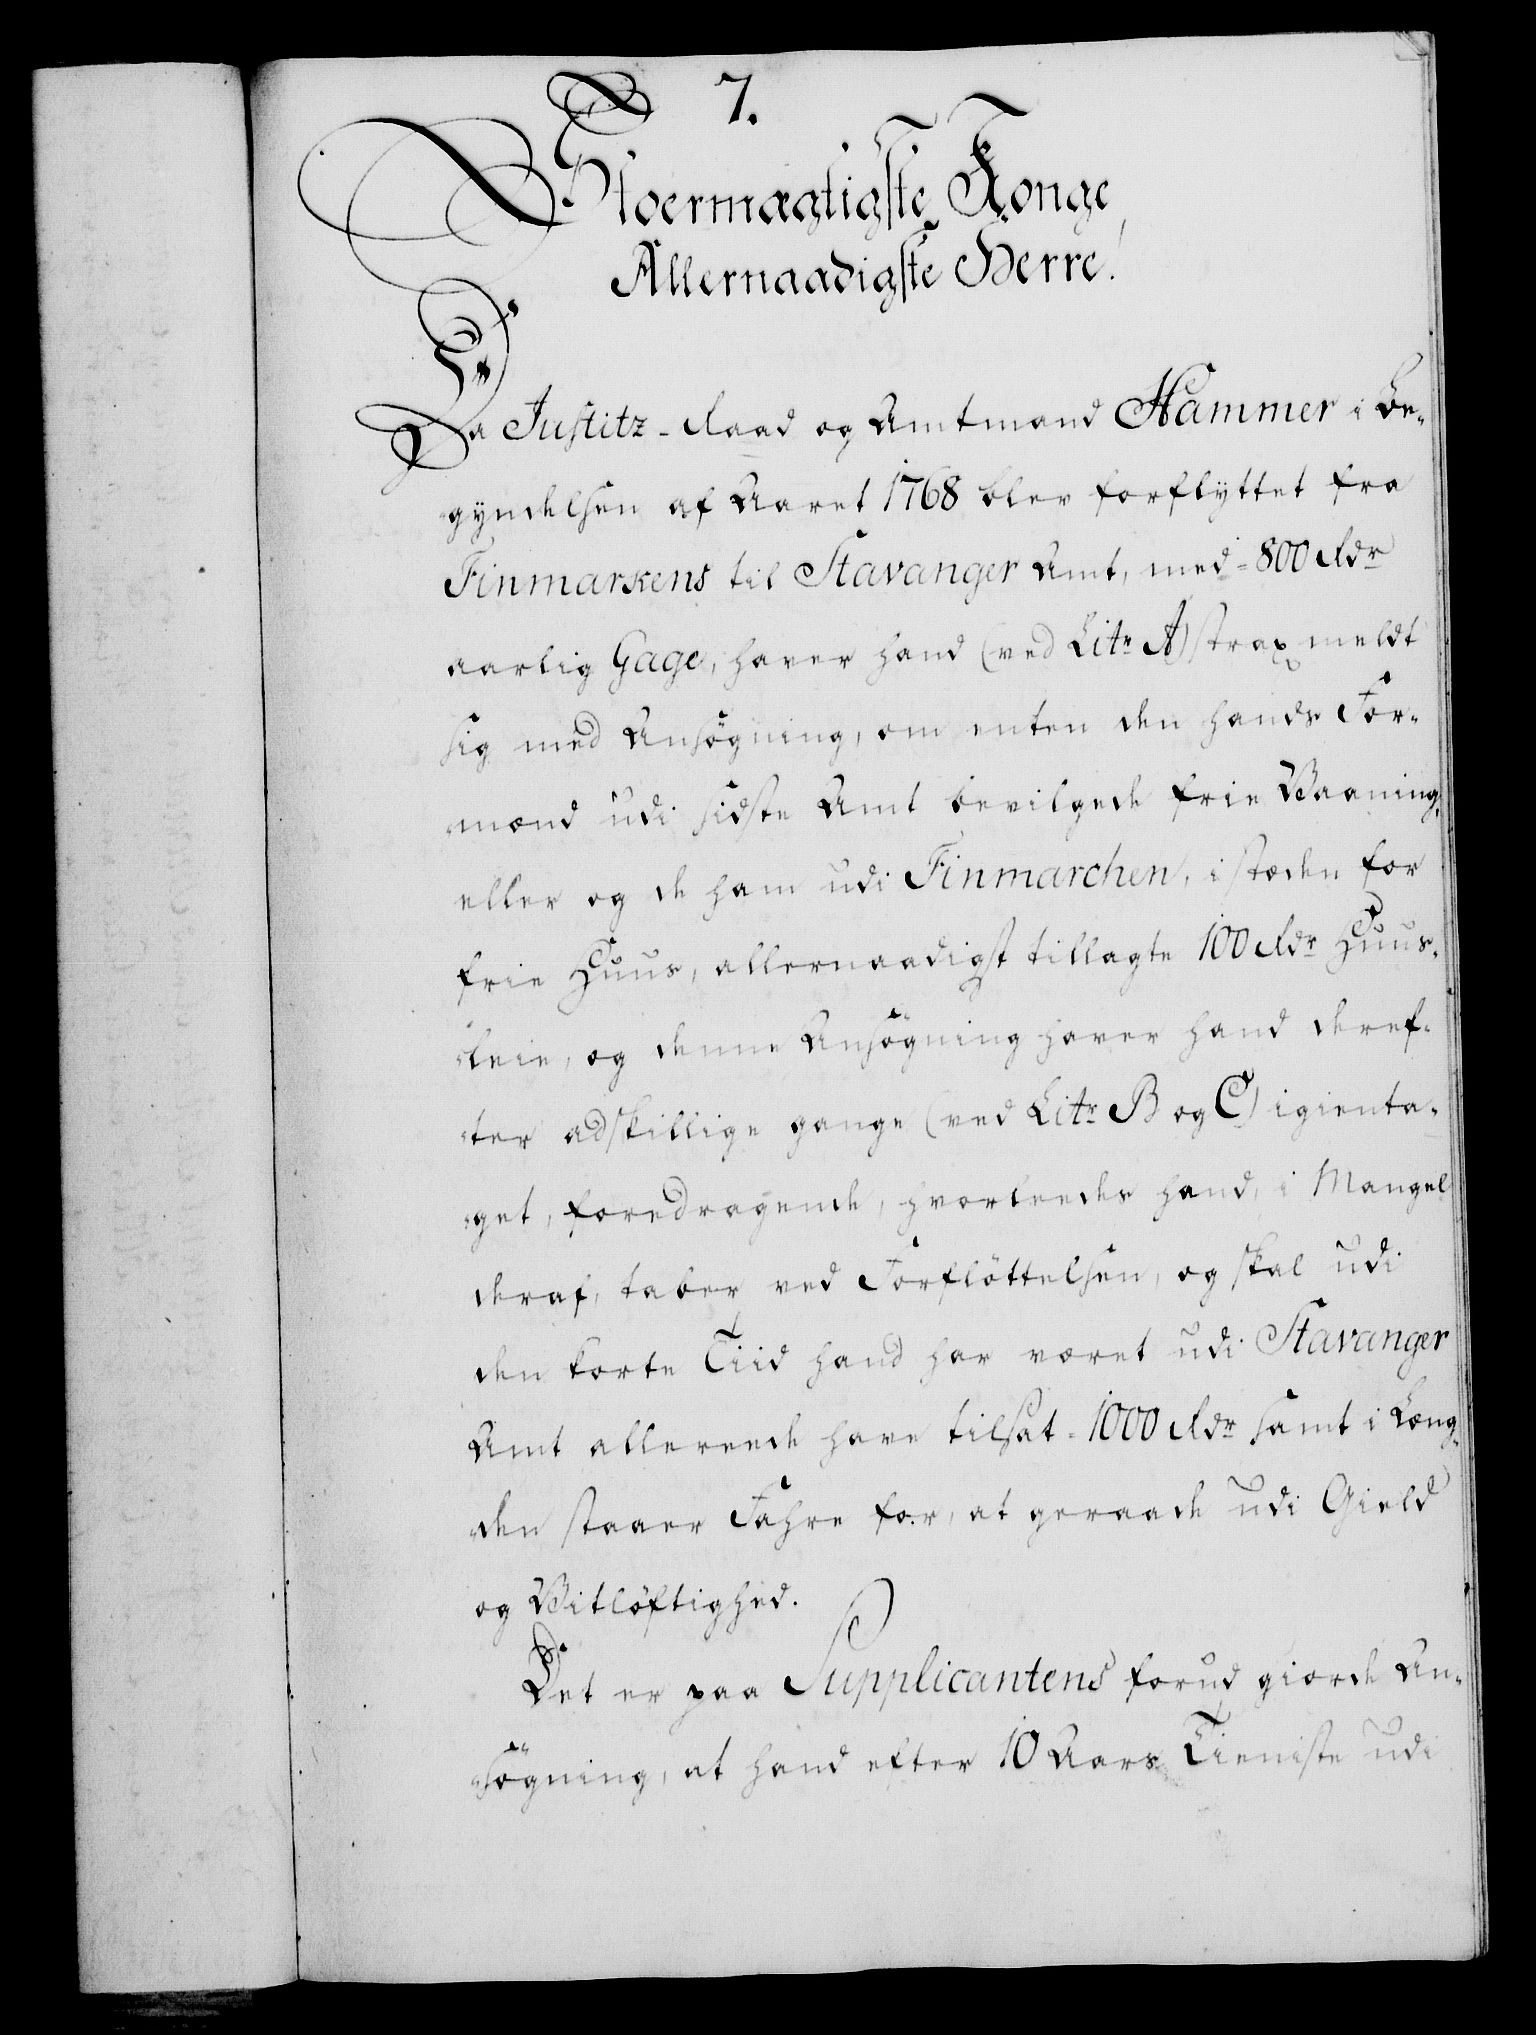 7.
Stoermægtigste Konge,
Allernaadigste Herre!
Da Justitz-Raad og Amtmand Hammer i Be-
gyndelsen af Aaret 1768 blev forflyttet fra
Finmarkens til Stavanger Amt, med 800 Rdr
aarlig Gage, haver hand (ved Litr A) strax meldt
sig med Ansögning, om enten den hands For-
mænd udi sidste Amt bevilgede frie Vaaning,
eller og de ham udi Finmarchen, i stæden for
frie Huus, allernaadigst tillagte 100 Rdr Huus-
leie, og denne Ansögning haver hand deref-
ter adskillige gange (ved Litr B og C) igienta-
get, foredragende, hvorleedes hand, i Mangel
deraf, taber ved Forflöttelsen, og skal udi
den korte Tiid hand har været udi Stavanger
Amt allereede have tilsat 1000 Rdr samt i Læng-
den staaer Fahre for, at geraade udi Gield
og Vitlöftighed.
Det er paa Supplicantens forud giorde An-
sögning, at hand efter 10 Aars Tieniste udi